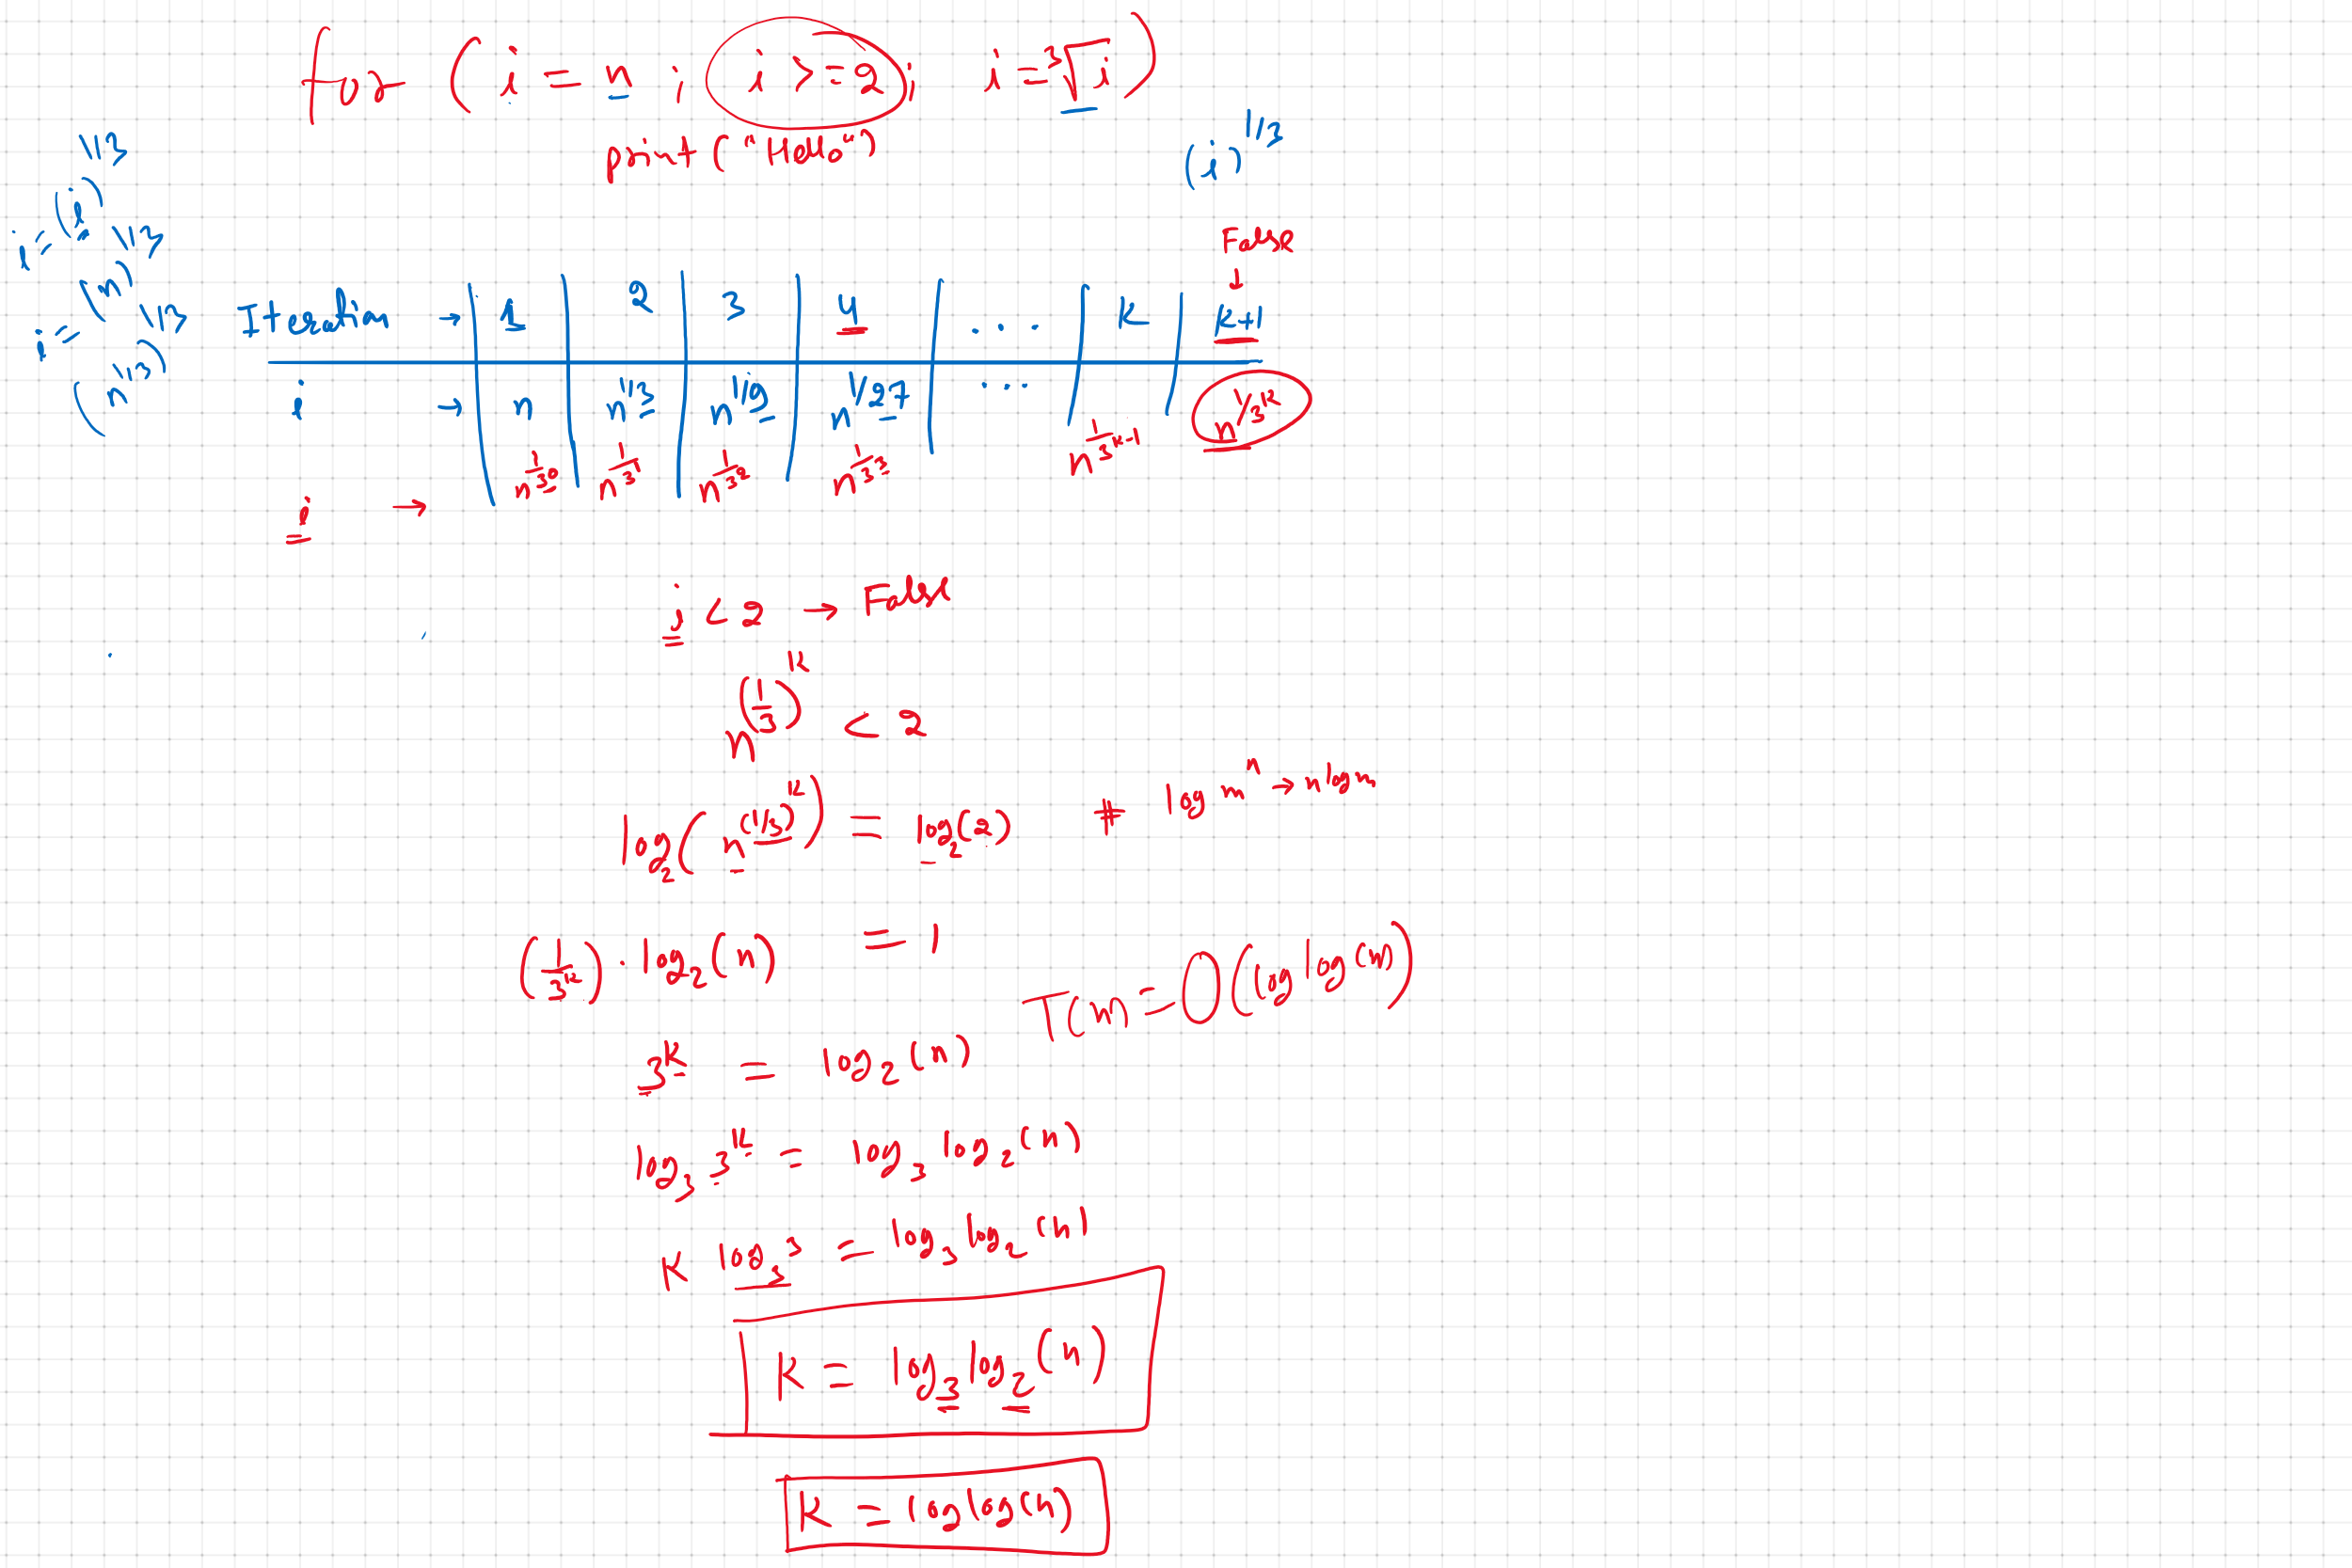 for ( i = n ; i >= 2 ; i = ³√i )
print ("Hello")
(i)^1/3
i = (i)^1/3
i = (n)^1/3
(n^1/3)^1/3
False
↓
Iteration → 1 2 3 4 ... k k+1
i → n n^1/3 n^1/9 n^1/27 ... n^1/3^k
i → n^1/3^0 n^1/3^1 n^1/3^2 n^1/3^3 n^1/3^k-1
i < 2 → False
n^(1/3)^k < 2
log₂(n^(1/3)^k) = log₂(2) # log m^n → n log m
(1/3^k) · log₂(n) = 1
T(n) = O(log log(n))
3^k = log₂(n)
log₃ 3^k = log₃ log₂(n)
K log₃ 3 = log₃ log₂(n)
K = log₃ log₂(n)
K = log log(n)